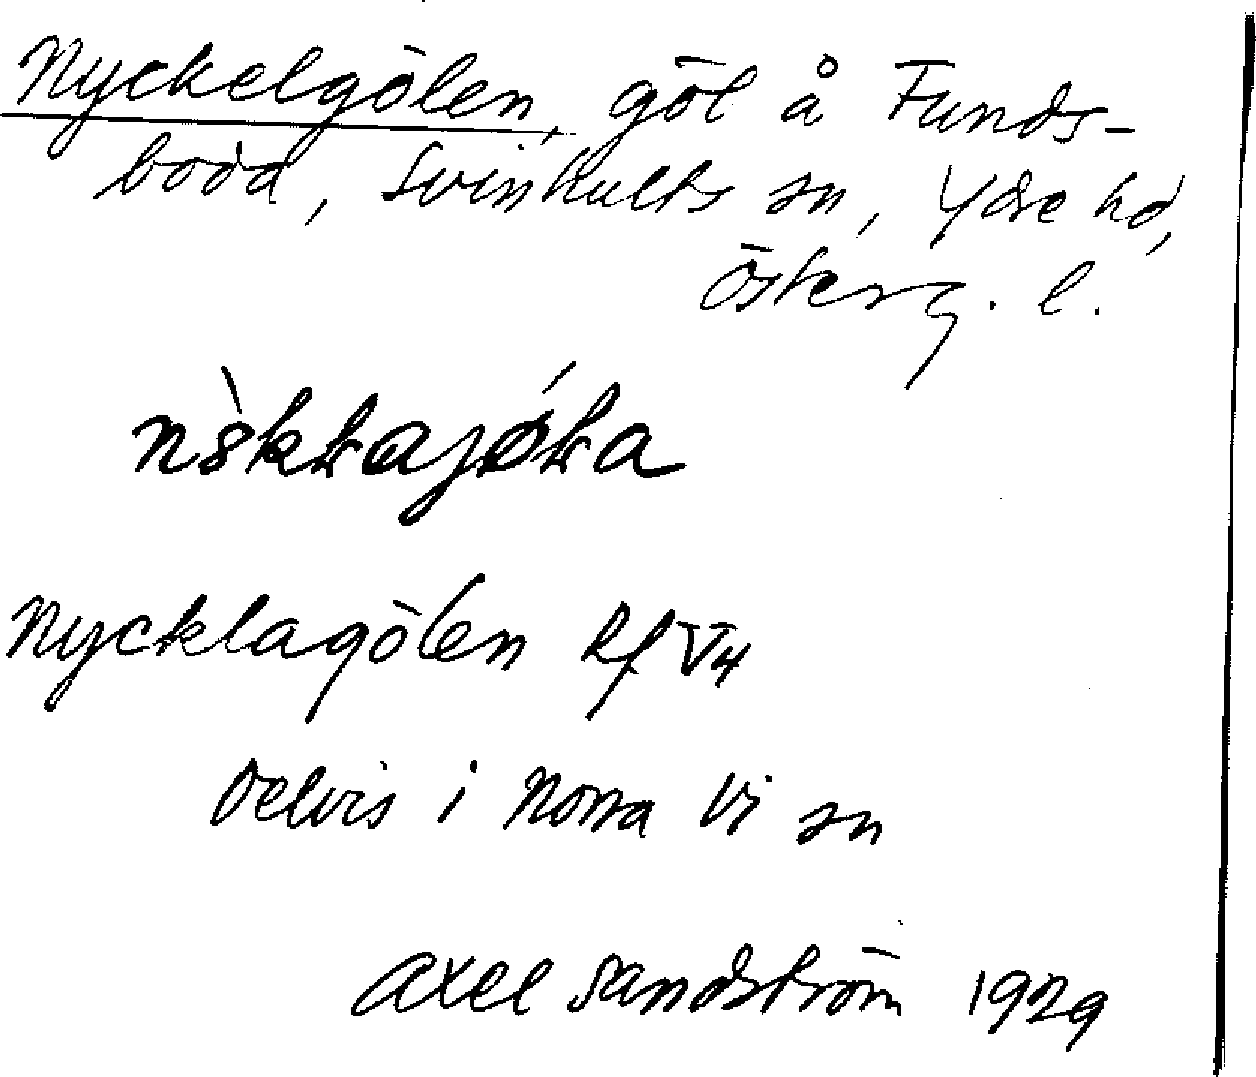 Nyckelgölen, göl å Funds-
boda, Svinhults sn, Ydre hd,
Österg. l.
Nycklagölen Rf V4
Delvis i Norra Vi sn
Axel Sandström 1929